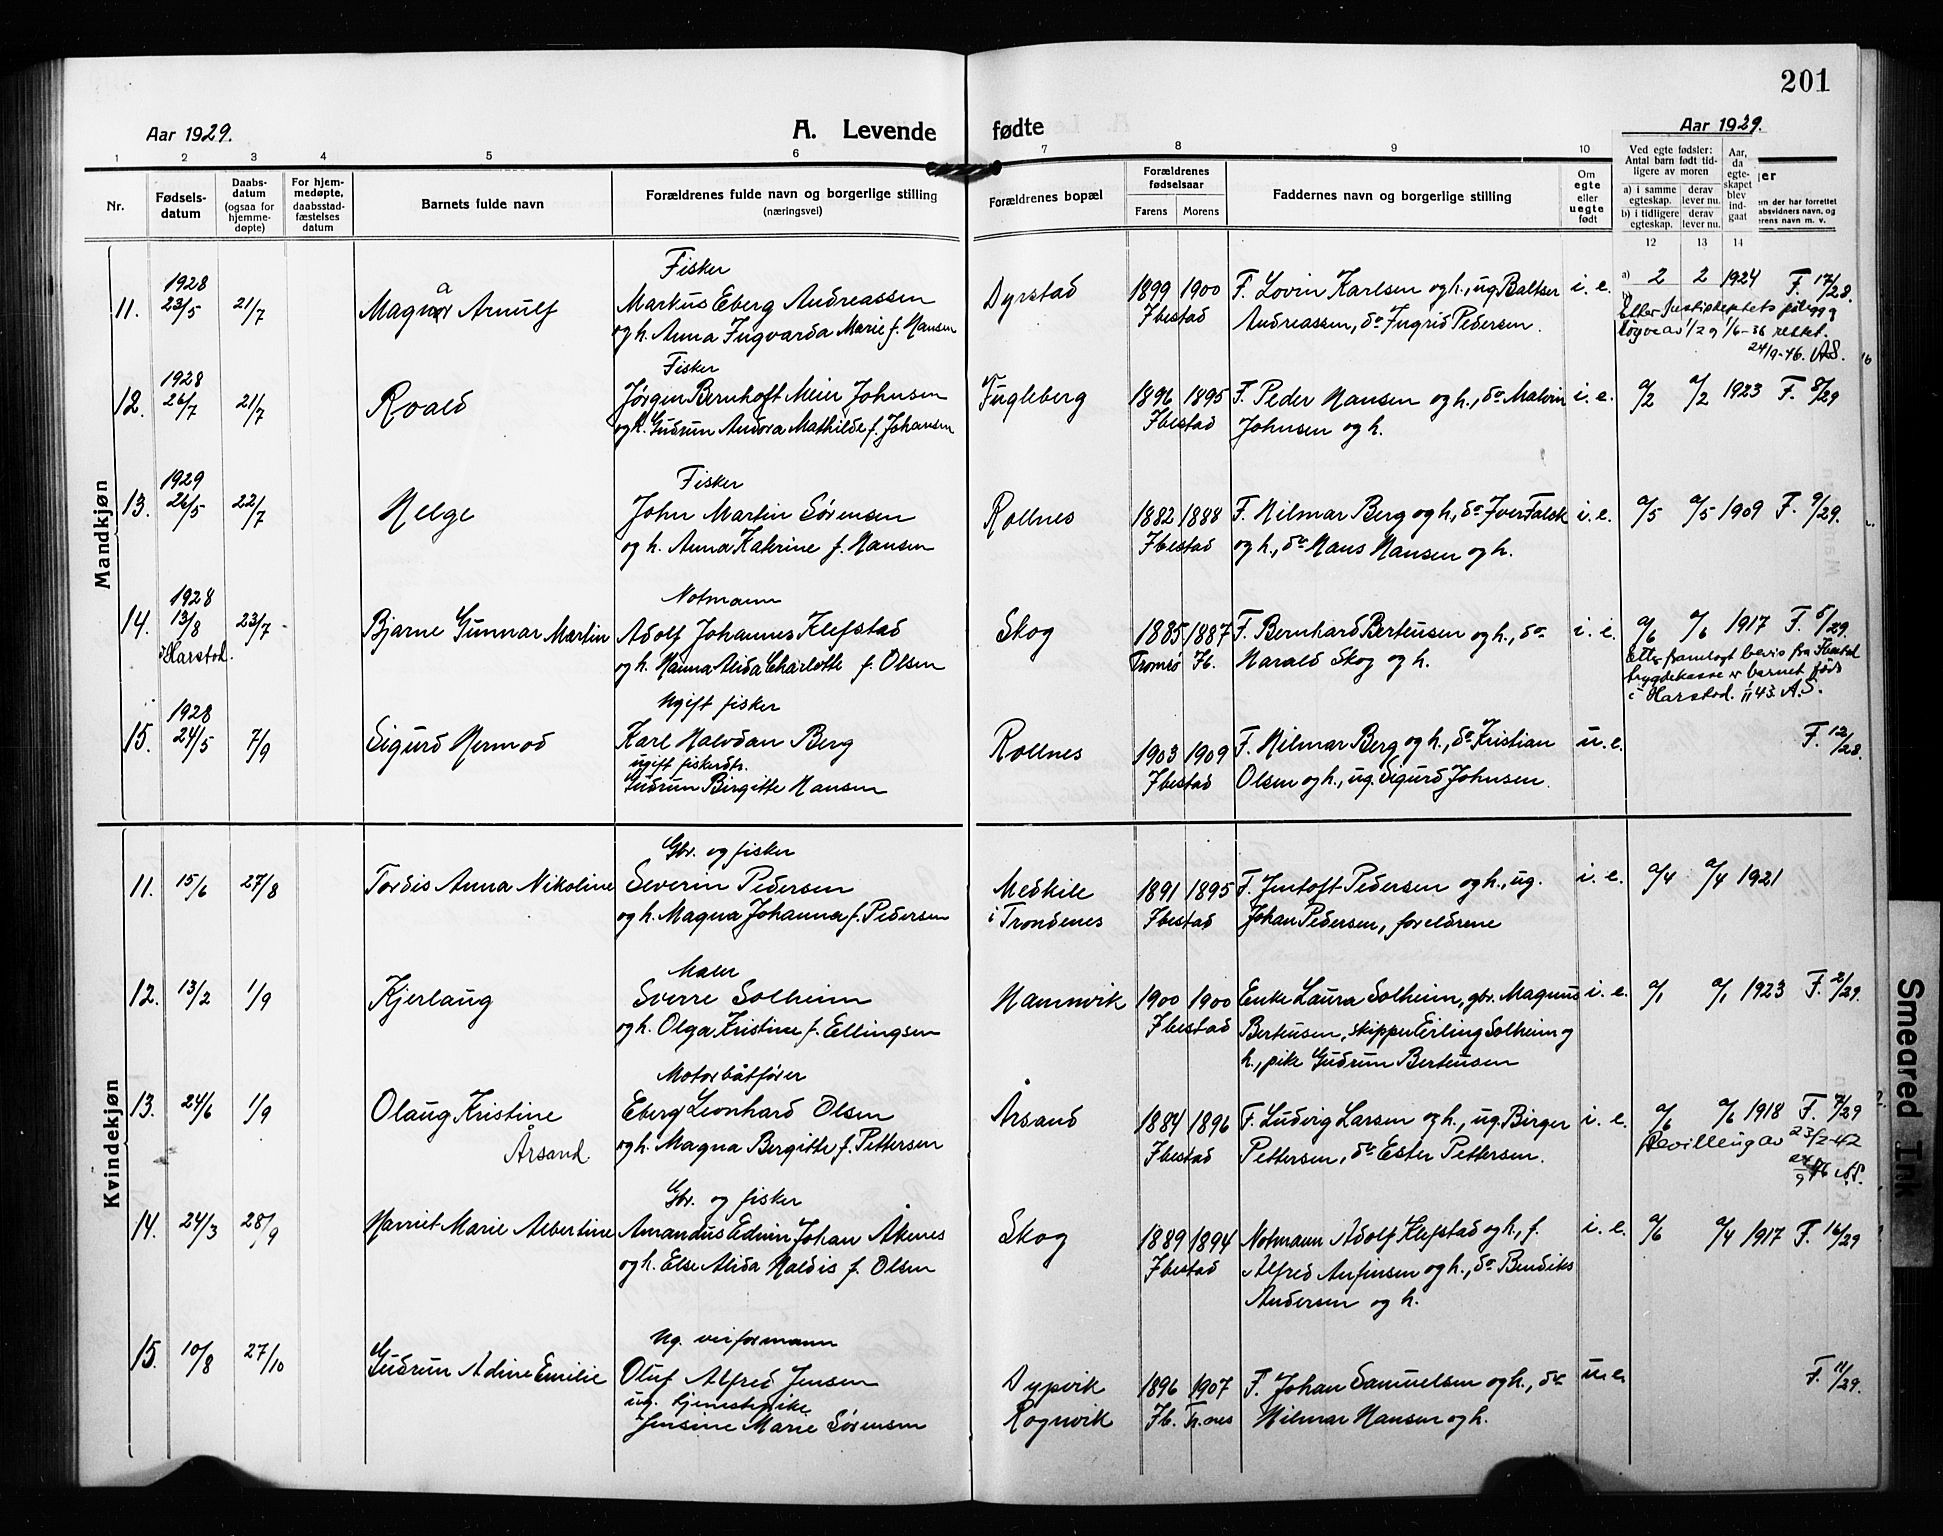 201
Aar 1929.
A. Levende fødte
Aar 1929.
1 2 3 4 5 6 7 8 9 10
Nr.
Fødsels-
datum
Daabs-
datum
(ogsaa for
hjemme-
døpte)
For hjem-
medøpte,
daabsstad-
fæstelses
datum
Barnets fulde navn
Forældrenes fulde navn og borgerlige stilling
(næringsvei)
Forældrenes bopæl
Forældrenes
fødselsaar
Farens Morens
Faddernes navn og borgerlige stilling
Om
egte
eller
uegte
født
Ved egte fødsler:
Antal barn født tid-
ligere av moren
a) i samme
egteskap.
derav
lever nu.
b) i tidligere
egteskap.
derav
lever nu.
Aar,
da
egte-
skapet
blev
ind-
gaat
12 13 14
Mandkjøn
11. 1928 23/5 21/7 Magnar Arnulf
Fisker
Markus Eberg Andreassen
og h. Anna Ingvarda Marie f. Hansen
Dyrstad 1899 1900 Ibestad
F. Lovin Karlsen og h., ug. Baltser
Andreassen, do Ingrid Pedersen.
i. e. a) 2 2 1924 F. 17/28.
24/9-46. A.S.
12. 1928 26/7 21/7 Roald
Fisker
Jørgen Bernhoft Meier Johnsen
og h. Gudrun Andora Mathilde f. Johansen
Fugleberg 1896 1895 Ibestad
F. Peder Hansen og h., do Malvin
Johnsen og h.
i. e. a/2 a/2 1923 F. 8/29
13. 1929 26/5 22/7 Helge
Fisker
John Martin Sørensen
og h. Anna Katrine f. Hansen
Rollnes 1882 1888 Ibestad
F. Hilmar Berg og h., do Iver Falck
og h., do Hans Hansen og h.
i. e. a/5 a/5 1909 F. 9/29.
14. 1928 13/8 Harstad. 23/7 Bjarne Gunnar Martin
Notmann
Adolf Johannes Klefstad
og h. Hanna Alida Charlotte f. Olsen
Skog 1885 1887 Tromsø Ib.
F. Bernhard Bertensen og h., do
Harald Skog og h.
i. e. a/6 a/6 1917 F. 5/29.
Etter framlagt bevis fra Ibestad
trygdekasse er barnet født
i Harstad. 1/11 43. A.S.
15. 1928 24/5 7/9 Sigurd Hermod
Ugift fisker
Karl Halvdan Berg
ugift fiskerdtr.
Gudrun Birgitte Hansen
Rollnes 1903 1909 Ibestad
F. Hilmar Berg og h., do Kristian
Olsen og h., ug. Sigurd Johnsen.
u. e. F. 12/28.
Kvindekjøn
11. 15/6 27/8 Tordis Anna Nikoline
Gbr. og fisker
Severin Pedersen
og h. Magna Johanna f. Pedersen
Medkile
i Trondenes
1891 1895 Ibestad
F. Jentoft Pedersen og h., ug.
Johan Pedersen, foreldrene
i. e. a/4 a/4 1921
12. 13/2 1/9 Kjerlaug
Maler
Sverre Solheim
og h. Olga Kristine f. Ellingsen
Hamnvik 1900 1900 Ibestad
Enke Laura Solheim, gbr. Magnus
Bertensen, skipper Erling Solheim og
h., pike Gudrun Bertensen
i. e. a/1 a/1 1923 F. 2/29.
13. 24/6 1/9 Olaug Kristine
Årsand
Motorbåtfører
Eberg Leonhard Olsen
og h. Magna Bergitte f. Pettersen
Årsand 1884 1896 Ibestad
F. Ludvig Larsen og h., ug. Birger
Pettersen, do Ester Pettersen.
i. e. a/6 a/6 1918 F. 7/29
Bevilling av 23/2-42
24/9 46 A.S.
14. 24/3 28/9 Harriet Marie Albertine
Gbr. og fisker
Amandus Edvin Johan Åkenes
og h. Else Alida Haldis f. Olsen
Skog 1889 1894 Ibestad
Notmann Adolf Klefstad og h., f.
Alfred Anfinsen og h., do Bendiks
Andersen og h.
i. e. a/6 a/4 1917 F. 16/29
15. 10/8 27/10 Gudrun Adine Emilie
Ug. veiformann
Oluf Alfred Jensen
ug. tjenestepike
Jensine Marie Sørensen
Dypvik
Rognvik
1896 1907 Ib. Tr.nes
F. Johan Samuelsen og h., do
Hilmar Hansen og h.
u. e. F. 11/29.
Smeared Ink